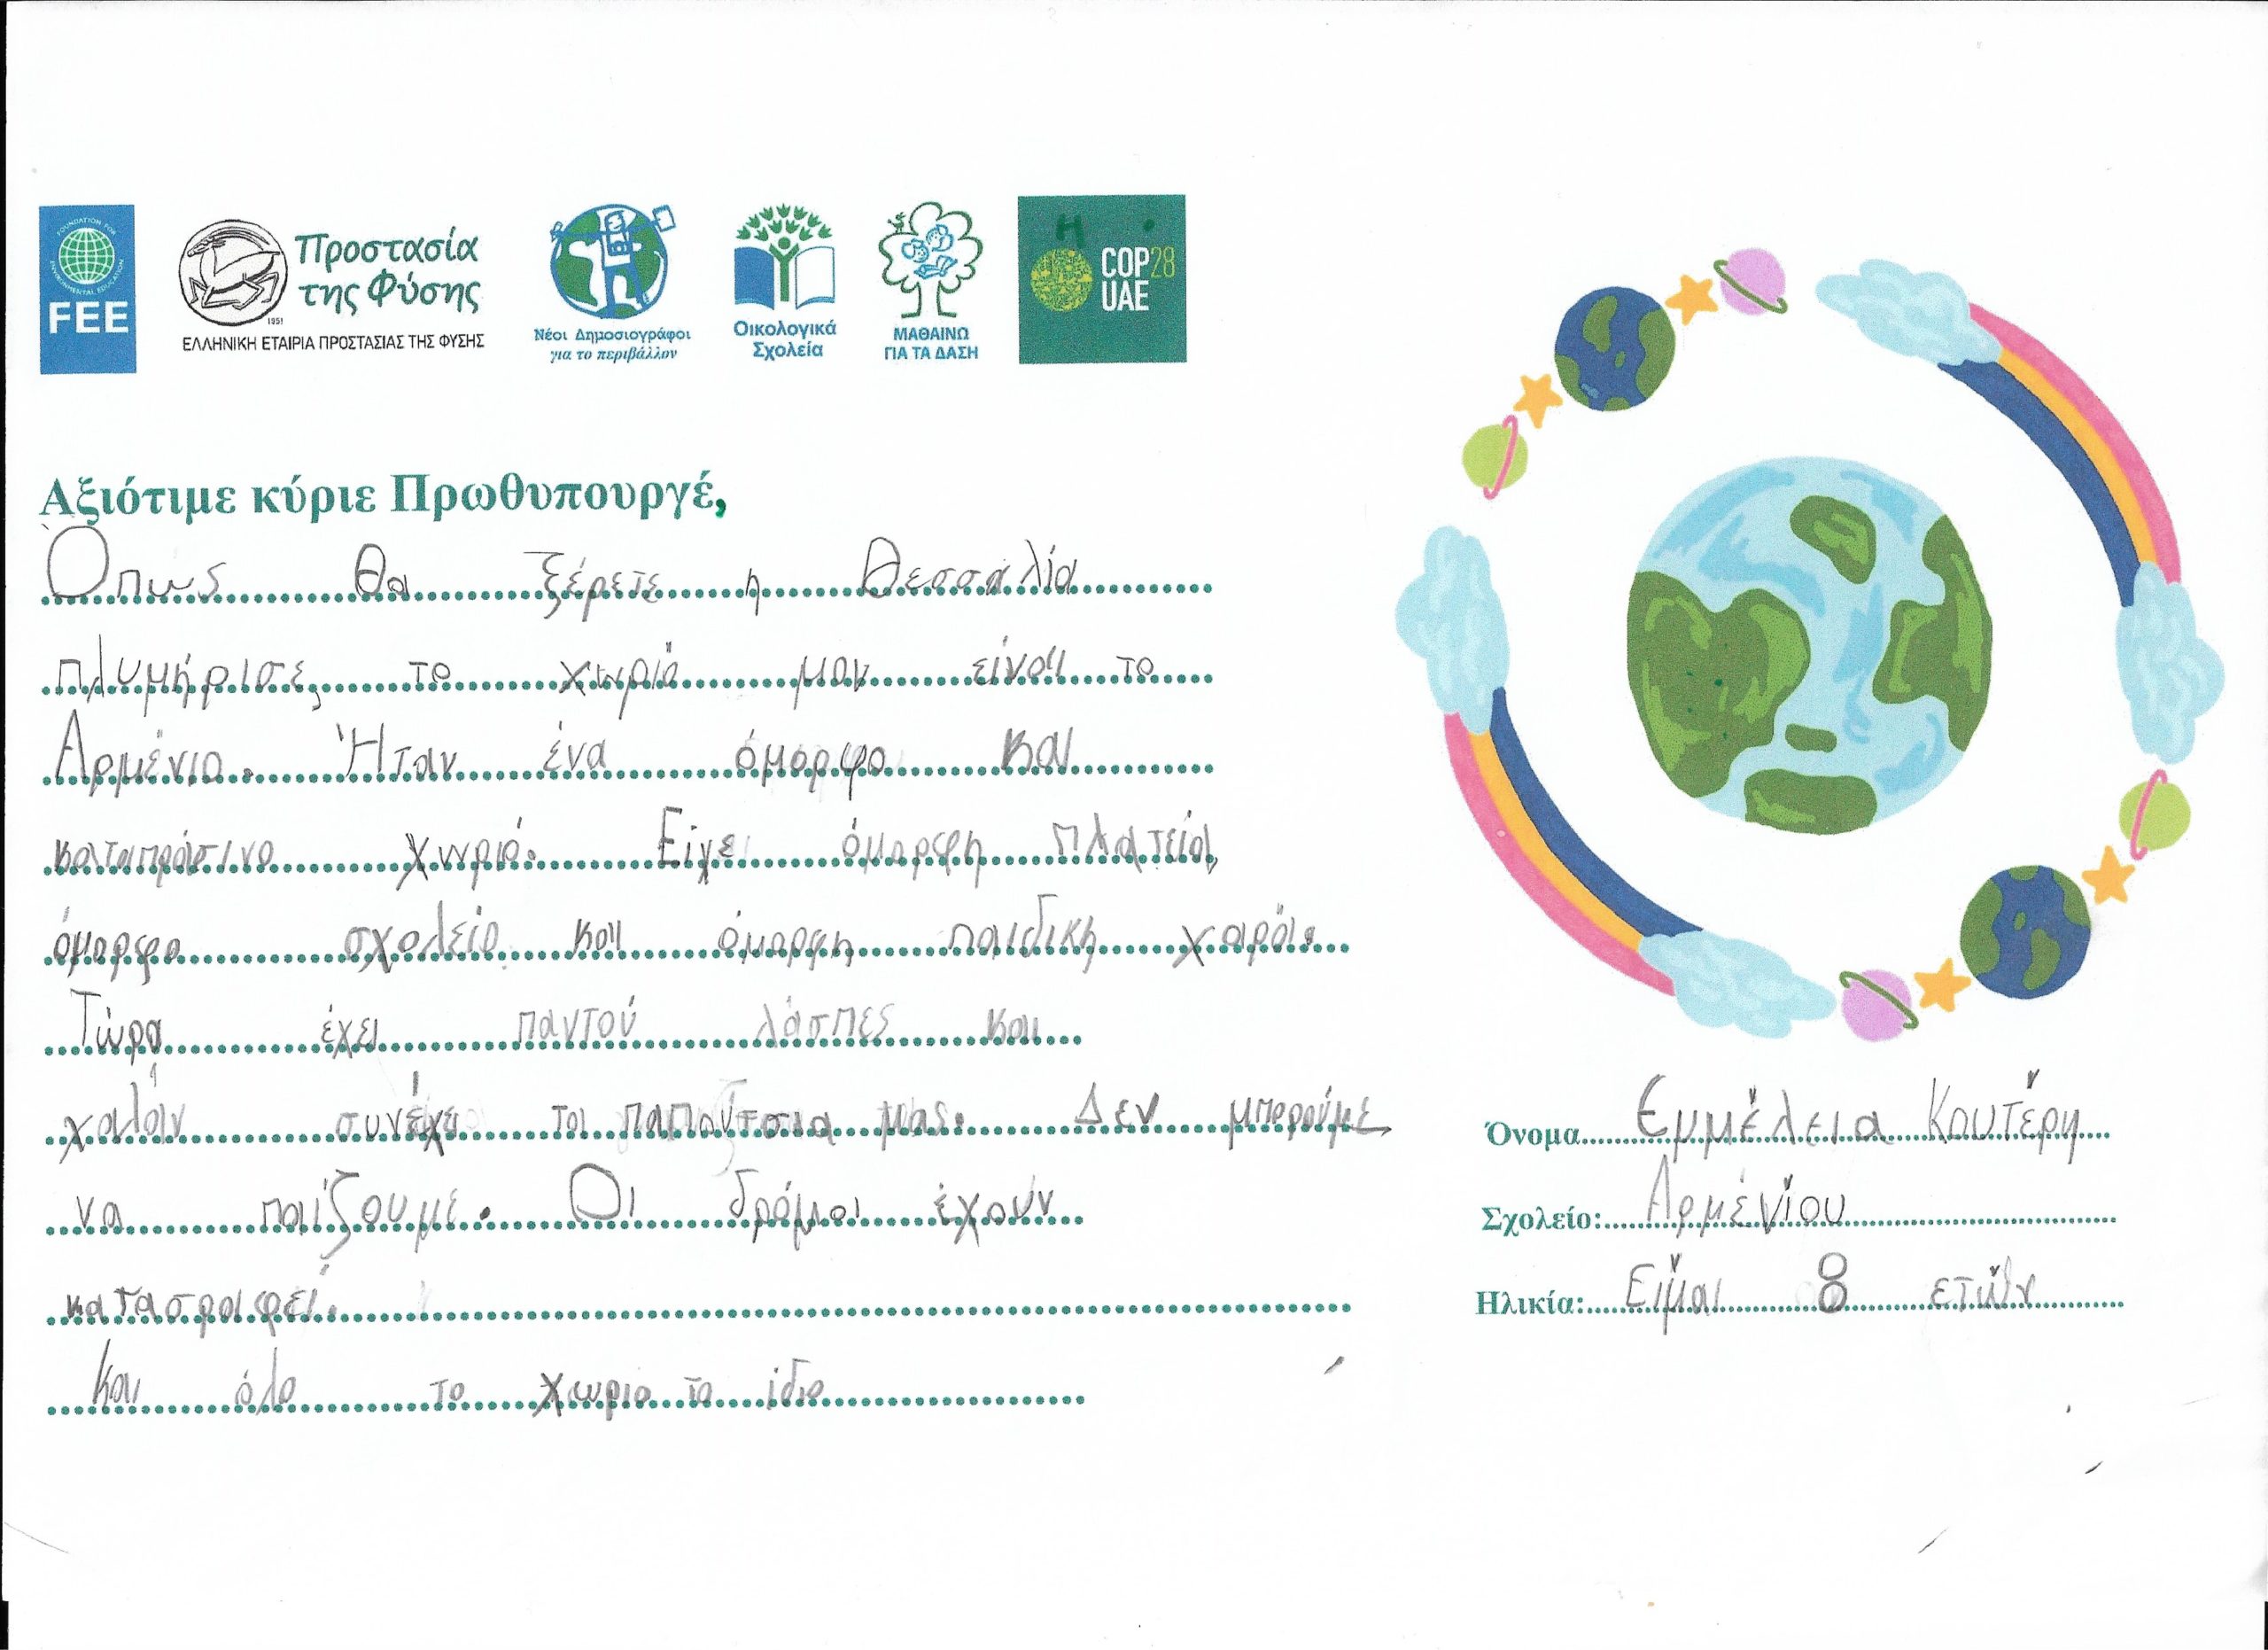 FOUNDATION FOR ENVIRONMENTAL EDUCATION
FEE
Προστασία
της Φύσης
1951
ΕΛΛΗΝΙΚΗ ΕΤΑΙΡΙΑ ΠΡΟΣΤΑΣΙΑΣ ΤΗΣ ΦΥΣΗΣ
Νέοι Δημοσιογράφοι
για το περιβάλλον
Οικολογικά
Σχολεία
ΜΑΘΑΙΝΩ
ΓΙΑ ΤΑ ΔΑΣΗ
Η
COP28
UAE
Αξιότιμε κύριε Πρωθυπουργέ,
Όπως θα ξέρετε η Θεσσαλία
πλυμήρισε, το χωριό μου είναι το
Αρμένιο. Ήταν ένα όμορφο και
καταπράσινο χωριό. Είχε όμορφη πλατεία,
όμορφο σχολείο και όμορφη παιδικη χαρά.
Τώρα έχει παντού λάσπες και
χαλάν συνέχε τα παπούτσια μας. Δεν μπορούμε
να παίζουμε. Οι δρόμοι έχουν
κατασραφεί.
Και όλο το χωριο το ίδιο
Όνομα Εμμέλεια Κουτέρη
Σχολείο: Αρμένίου
Ηλικία: Είμαι 8 ετών